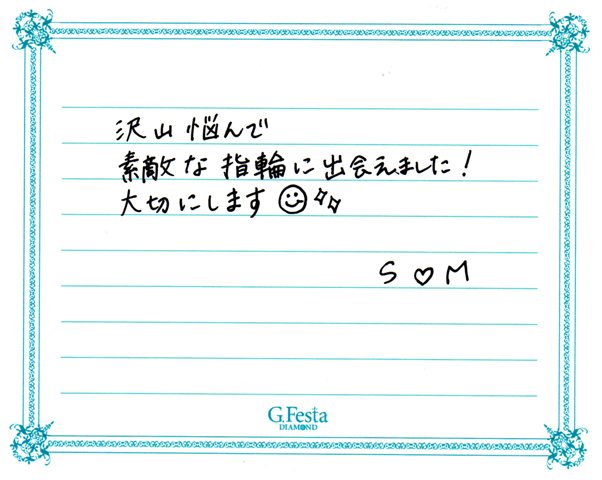 沢山悩んで
素敵な指輪に出会えました!
大切にします☺✨
S♡M
G.Festa
DIAMOND